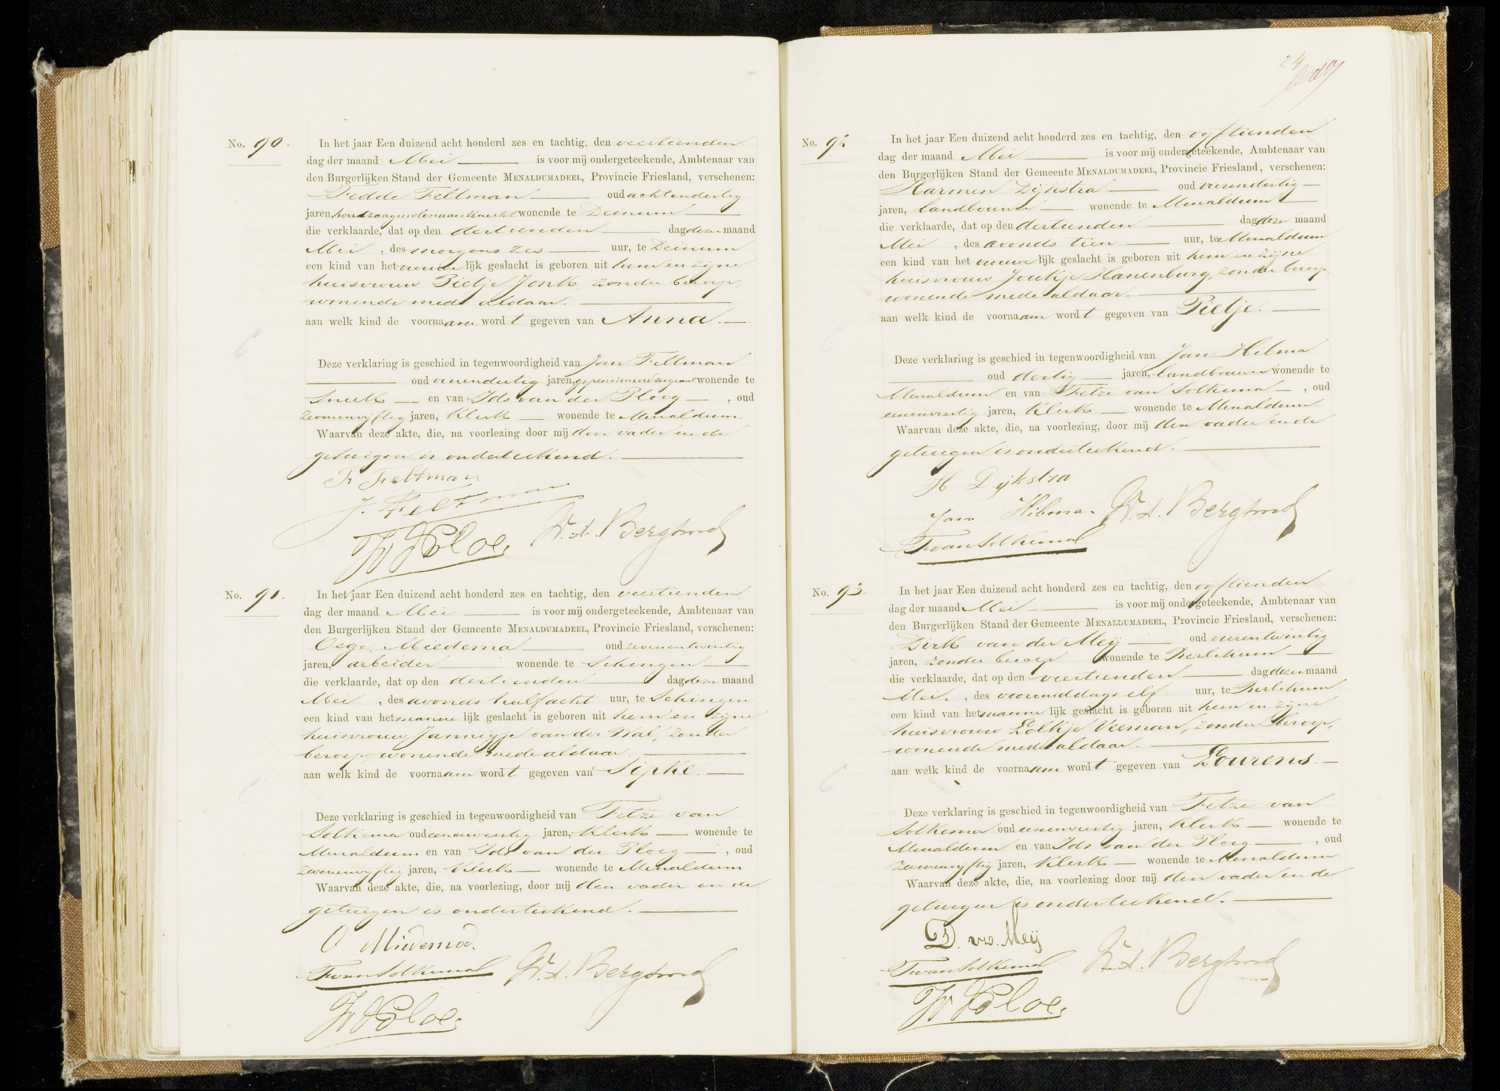 No. 90.
In het jaar Een duizend acht honderd zes en tachtig, den veertienden
dag der maand Mei is voor mij ondergeteekende, Ambtenaar van
den Burgerlijken Stand der Gemeente MENALDUMADEEL, Provincie Friesland, verschenen:
Fedde Feltman oud achtendertig
jaren, houtzaagmolenaarsknecht wonende te Deinum
die verklaarde, dat op den dertienden dag dezer maand
Mei, des morgens zes uur, te Deinum
een kind van het vrouwelijk geslacht is geboren uit hem en zijne
huisvrouw Pietje Jonk zonder beroep,
wonende mede aldaar.
aan welk kind de voornaam wordt gegeven van Anna.
Deze verklaring is geschied in tegenwoordigheid van Jan Feltman
oud eenendertig jaren, wonende te
Sneek en van Ids van der Ploeg, oud
tweeenvijftig jaren, Klerk wonende te Menaldum
Waarvan deze akte, die, na voorlezing door mij den vader en de
getuigen is onderteekend.
F. Feltman
J. Feltman
No. 91.
In het jaar Een duizend acht honderd zes en tachtig, den veertienden
dag der maand Mei is voor mij ondergeteekende, Ambtenaar van
den Burgerlijken Stand der Gemeente MENALDUMADEEL, Provincie Friesland, verschenen:
Oege Miedema oud zevenentwintig
jaren, arbeider wonende te Schingen
die verklaarde, dat op den dertienden dag dezer maand
Mei, des avonds half acht uur, te Schingen
een kind van het mannelijk geslacht is geboren uit hem en zijne
huisvrouw Jannigje van der Wal, zonder
beroep wonende mede aldaar.
aan welk kind de voornaam wordt gegeven van Sipke.
Deze verklaring is geschied in tegenwoordigheid van Fetze van
Solkema oud eenenveertig jaren, Klerk wonende te
Menaldum en van Ids van der Ploeg, oud
tweeenvijftig jaren, Klerk wonende te Menaldum
Waarvan deze akte, die, na voorlezing door mij den vader en de
getuigen is onderteekend.
O Miedema.
F van Solkema
24
No. 92
In het jaar Een duizend acht honderd zes en tachtig, den vijftienden
dag der maand Mei is voor mij ondergeteekende, Ambtenaar van
den Burgerlijken Stand der Gemeente MENALDUMADEEL, Provincie Friesland, verschenen:
Harmen Dijkstra oud eenendertig
jaren, landbouwer wonende te Menaldum
die verklaarde, dat op den dertienden dag dezer maand
Mei, des avonds tien uur, te Menaldum
een kind van het vrouwelijk geslacht is geboren uit hem en zijne
huisvrouw Joukje Hanenburg, zonder beroep
wonende mede aldaar.
aan welk kind de voornaam wordt gegeven van Pietje.
Deze verklaring is geschied in tegenwoordigheid van Jan Hilma
oud dertig jaren, landbouwer wonende te
Menaldum en van Fetze van Solkema, oud
eenenveertig jaren, Klerk wonende te Menaldum
Waarvan deze akte, die, na voorlezing door mij den vader en de
getuigen is onderteekend.
H Dijkstra
Jan Hilma.
F van Solkema
No. 93.
In het jaar Een duizend acht honderd zes en tachtig, den vijftienden
dag der maand Mei is voor mij ondergeteekende, Ambtenaar van
den Burgerlijken Stand der Gemeente MENALDUMADEEL, Provincie Friesland, verschenen:
Dirk van der Meij oud vierentwintig
jaren, zonder beroep wonende te Berlikum
die verklaarde, dat op den veertienden dag dezer maand
Mei, des voormiddags elf uur, te Berlikum
een kind van het mannelijk geslacht is geboren uit hem en zijne
huisvrouw Lolkje Veeman, zonder beroep,
wonende mede aldaar.
aan welk kind de voornaam wordt gegeven van Lourens.
Deze verklaring is geschied in tegenwoordigheid van Fetze van
Solkema oud eenenveertig jaren, Klerk wonende te
Menaldum en van Ids van der Ploeg, oud
tweeenvijftig jaren, Klerk wonende te Menaldum
Waarvan deze akte, die, na voorlezing door mij den vader en de
getuigen is onderteekend.
D. vd. Meij
F van Solkema